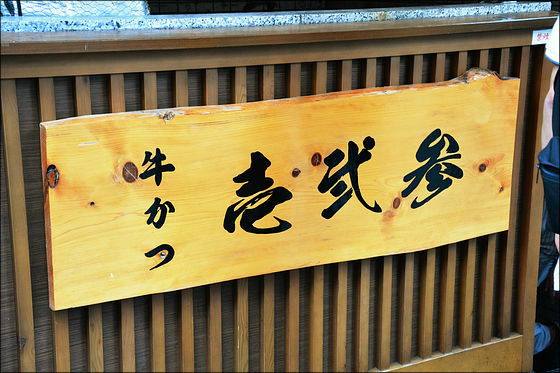 牛かつ
壱弐参